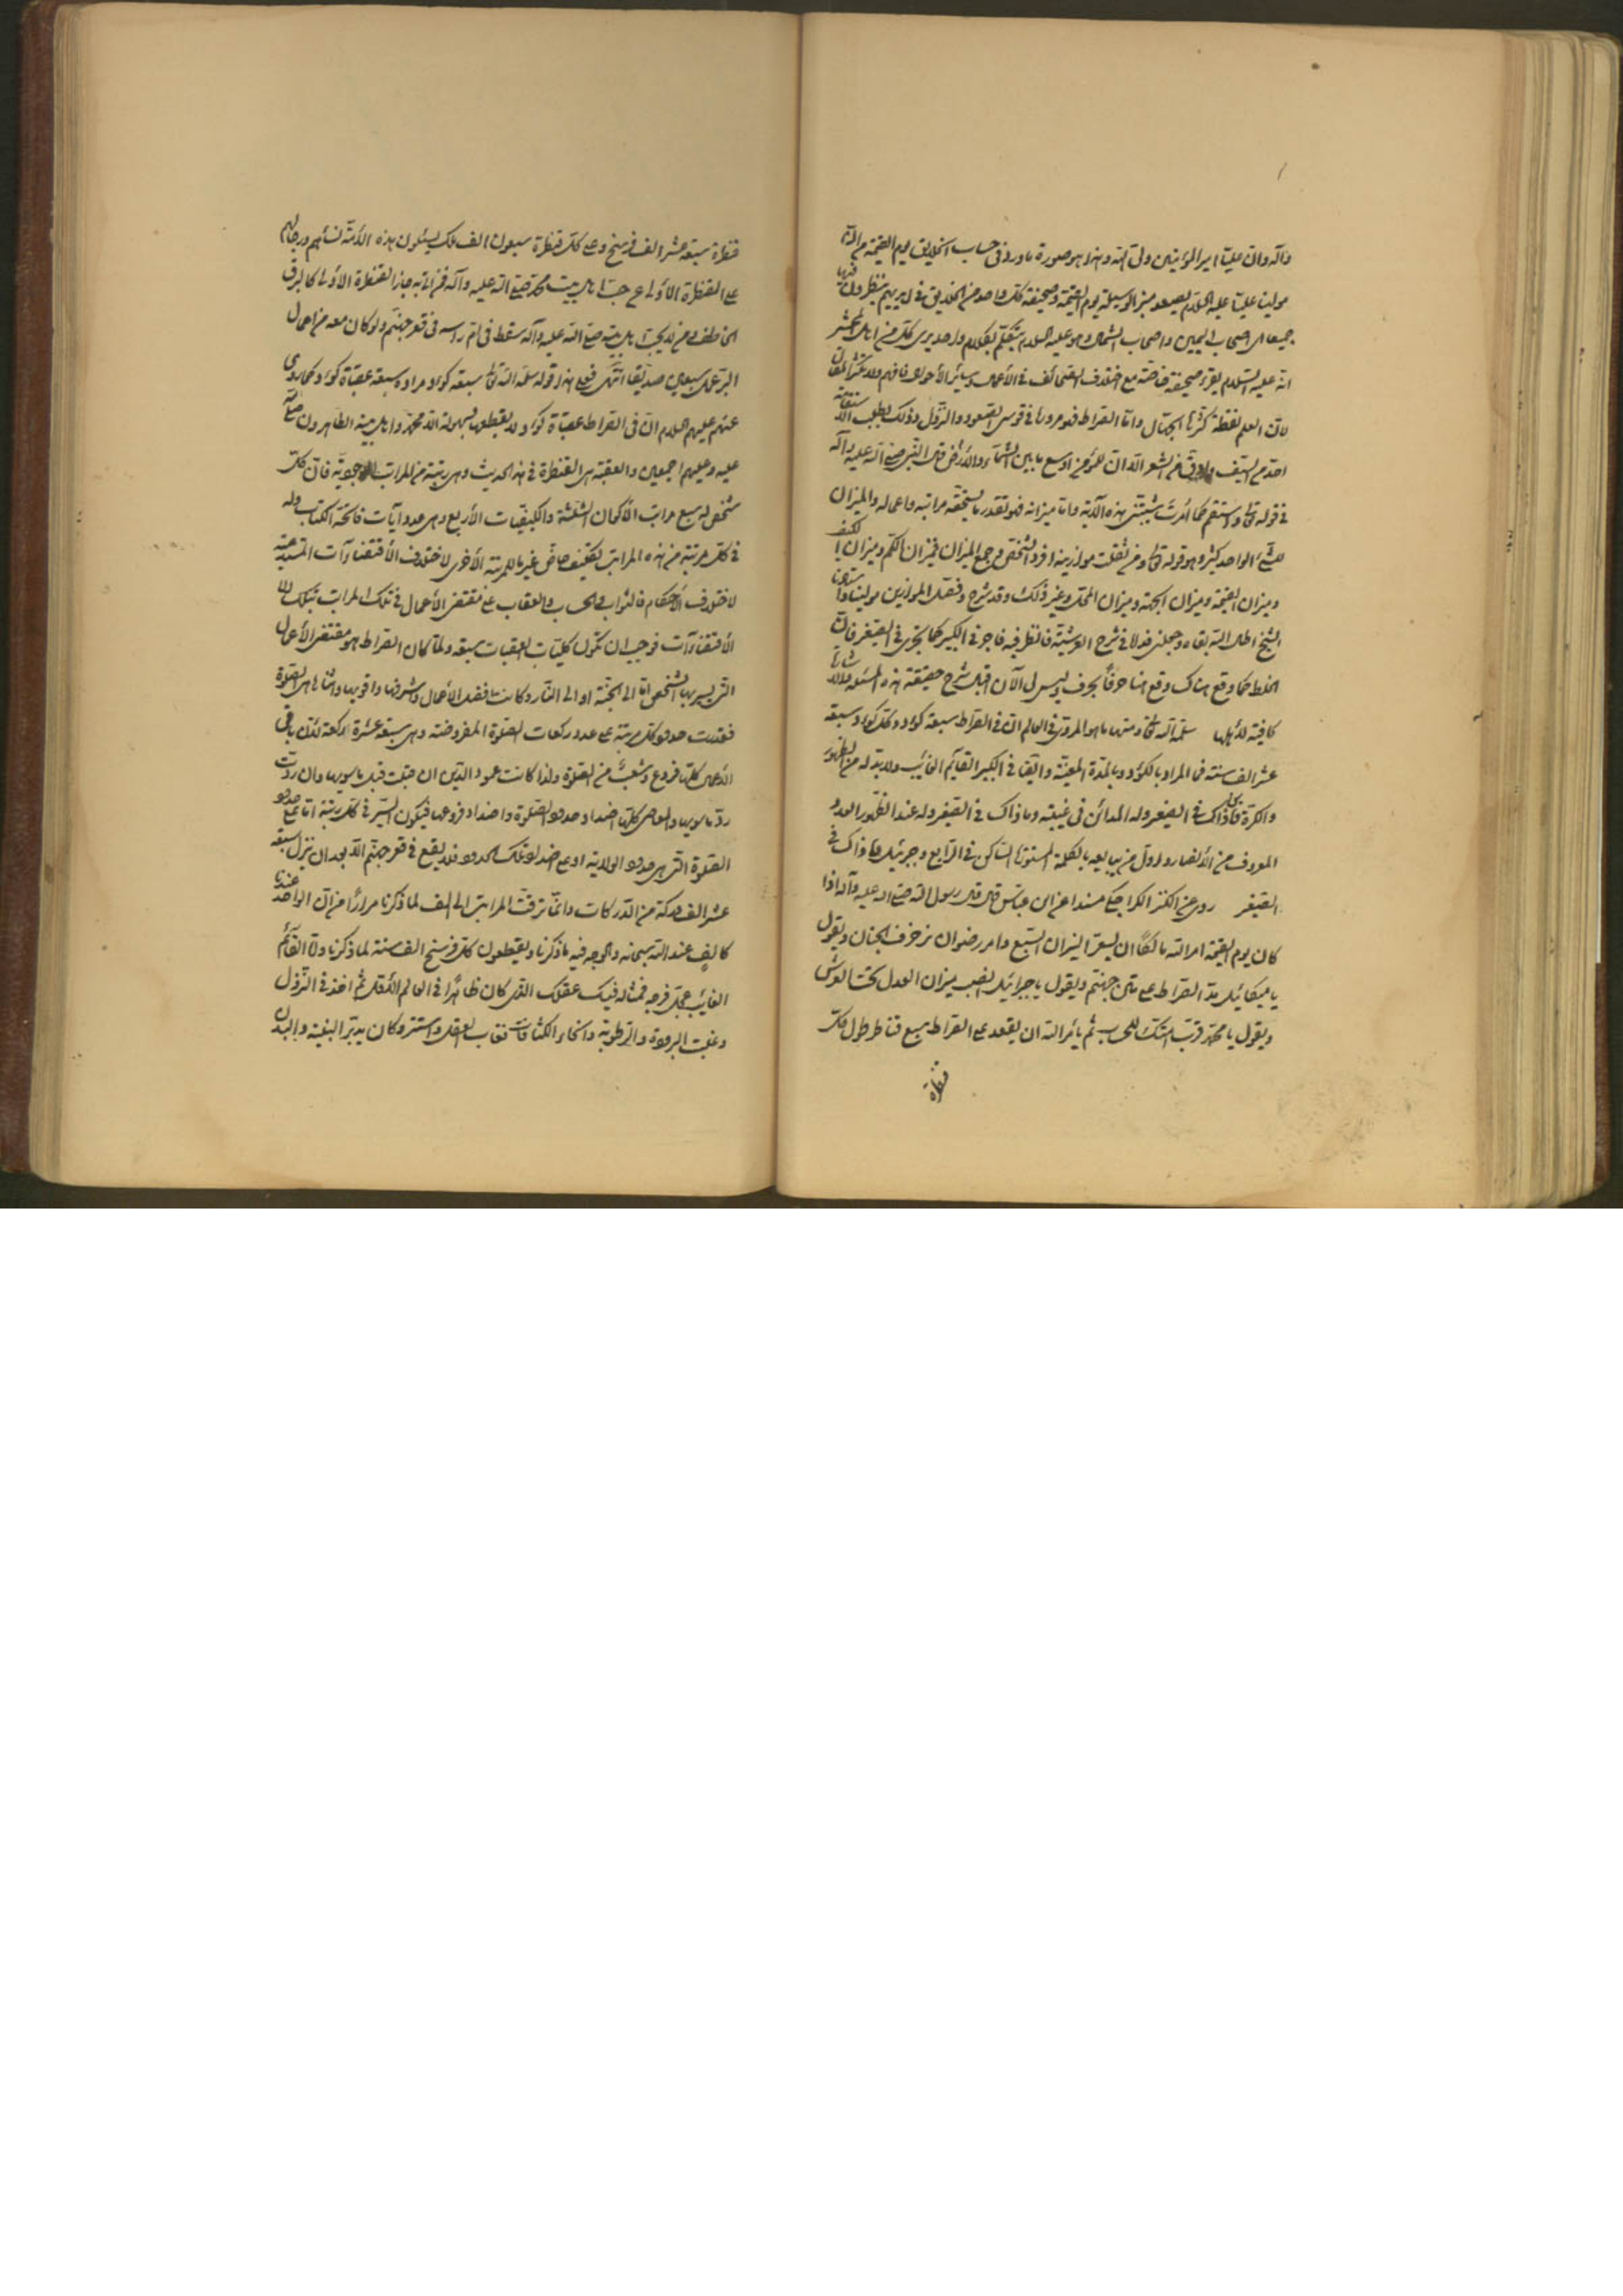 وآله وان عليّا امير المؤمنين وليّ الله وهذا هو صورة ما ورد في حساب الخلايق يوم القيمة من انّ
مولينا عليّا عليه السلام يصعد منبر الوسيلة يوم القيمة وصحيفة كلّ واحد من الخلايق في ايديهم ينظرون فيها
جميعا اصحاب اليمين واصحاب الشمال وهو عليه السلام يتكلّم بكلام واحد يرى كلّ من اهل المحشر
انّه عليه السّلام يقرء صحيفة خاصّة مع اختلاف الصحائف في الأعمال وساير الأحوال فافهم ولا تكثر المقال
لانّ العلم نقطة كثّرها الجهّال وامّا الصراط فهو مرورنا في قوس الصعود والنزول وذلك يطلب الاستقامة
احدّ من السيف وادقّ من الشعر الّا انّ للمؤمن اوسع ما بين السّماء والأرض قال النبي صلى الله عليه وآله
في قوله تعالى واستقم كما اُمرت شيّبتني هذه الآية وامّا ميزانه فهو تقدير ما يستحقّه مراتبه واعماله والميزان
للشيء الواحد كثير وهو قوله تعالى ومن ثقلت موازينه افرد الشخص وجمع الميزان فميزان الكمّ وميزان الكيف
وميزان القيمة وميزان الجهة وميزان المحلّ وغير ذلك وقد شرح وفصّل الموازين مولينا واستادنا
الشيخ اطال الله بقاه وجعلني فداه في شرح العرشية فانظر فيه فاجر في الكبير كما يجري في الصغير فانّ
الخطّ كما وقع هناك وقع هنا حرفًا بحرف وليس لي الآن اقبال شرح حقيقة هذه المسئلة والاشارة
كافية لأهلها سلّمه الله تعالى ومنها ما هو المروي في العالم انّ في الصراط سبعة كؤد وكلّ كؤد سبعة
عشر الف سنة فما المراد بالكؤد وبالمدّة المعيّنة وايضا في الكبير القائم الغائب ولا بدّ له من الظهور
والكرّة فما ذاك في الصغير وله المدائن في غيبته وما ذاك في الصغير وله عند الظهور العدد
المعروف من الأنصار واوّل من يبايعه بالكلمة المستورة الساكن في الرّابع وجبرئيل فما ذاك في
الصغير روى في الكنز الكراجكي مسندا عن ابن عبّاس قال قال رسول الله صلى الله عليه وآله اذا
كان يوم القيمة امر الله مالكًا ان يسعّر النيران السّبع وامر رضوان ان يزخرف الجنان ويقول
يا ميكائيل مدّ الصراط على متن جهنّم ويقول يا جبرائيل انصب ميزان العدل تحت العرش
ويقول يا محمّد قرّب امّتك للحساب ثم يأمر الله ان يعقد على الصراط سبع قناطر طول كلّ
قنطرة
قنطرة سبعة عشر الف فرسخ وعلى كلّ قنطرة سبعون الف ملك يسئلون هذه الأمة نسائهم ورجالهم
على القنطرة الأولى عن حبّ اهل بيت محمّد صلى الله عليه وآله فمن اتى به جاز القنطرة الأولى كالبرق
الخاطف ومن لا يحبّ اهل بيته صلى الله عليه وآله سقط في امّ راسه في قعر جهنّم ولو كان معه من اعمال
البرّ عمل سبعين صدّيقا انتهى فعلى هذا قوله سلّمه الله تعالى سبعة كؤد مراده سبعة عقبات كؤد وكما روى
عنهم عليهم السلام انّ في الصراط عقبات كؤد لا يقطعها بسهولة الّا محمّد واهل بيته الطاهرون صلى الله
عليه وعليهم اجمعين والعقبة هي القنطرة في هذا الحديث وهي رتبة من المراتب الوجودية فانّ كلّ
شخص له سبع مراتب الأكوان الثلثة والكيفيّات الأربع وهي عدد آيات فاتحة الكتاب وله
في كلّ مرتبة من هذه المراتب تكليف خاصّ غير ما للمرتبة الأخرى لاختلاف الأقتضاءآت المستدعية
لاختلاف الأحكام فالثواب والحساب والعقاب على مقتضى الأعمال في تلك المراتب بتلك
الأقتضاءآت فوجب ان تكون كليّات العقبات سبعة ولمّا كان الصراط هو مقتضى الأعمال
التي يسير بها الشخص امّا الى الجنّة او الى النّار وكانت افضل الأعمال واشرفها واقويها واثناها هي الصلوة
فقدّرت حدود كلّ مرتبة على عدد ركعات الصلوة المفروضة وهي سبعة عشرة ركعة لانّ باقي
الأعمال كلّها فروع وشعب من الصلوة ولذا كانت عمود الدّين ان قبلت قبل ما سويها وان ردّت
ردّ ما سويها والمعاصي كلّها اضداد حدود الصلوة واضداد فروعها فيكون السّير في كلّ رتبة امّا على حدود
الصلوة التي هي حدود الولاية او على ضدّ تلك الحدود فلا يقع في قعر جهنّم الّا بعد ان ينزل سبعة
عشر الف دركة من الدّركات وانّما ترقّت المراتب الى الف لما ذكرنا مرارًا من انّ الواحد عندنا
كالف عند الله سبحانه والوجه فيه ما ذكرنا ويقطعون كلّ فرسخ الف سنة لما ذكرنا وامّا القآئم
الغائب عجّل فرجه فمثاله فيك عقلك الذي كان ظاهرًا في العالم الأوّل ثم اخذ في النّزول
وغلبت البرودة والرّطوبة وانحاء الكثافات فغاب العقل واستتر وكان يدبّر البنية والبدن